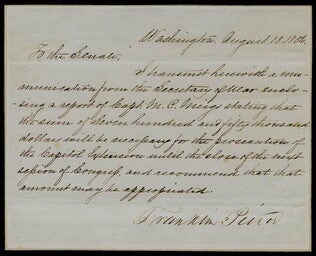 Washington, August 18, 1856.
To the Senate,
I transmit herewith a com-
munication from the Secretary of War enclo-
sing a report of Capt. M. C. Meigs stating that
the sum of Seven hundred and fifty thousand
dollars will be necessary for the prosecution of
the Capitol Extension until the close of the next
session of Congress, and recommend that that
amount may be appropriated.
Franklin Pierce